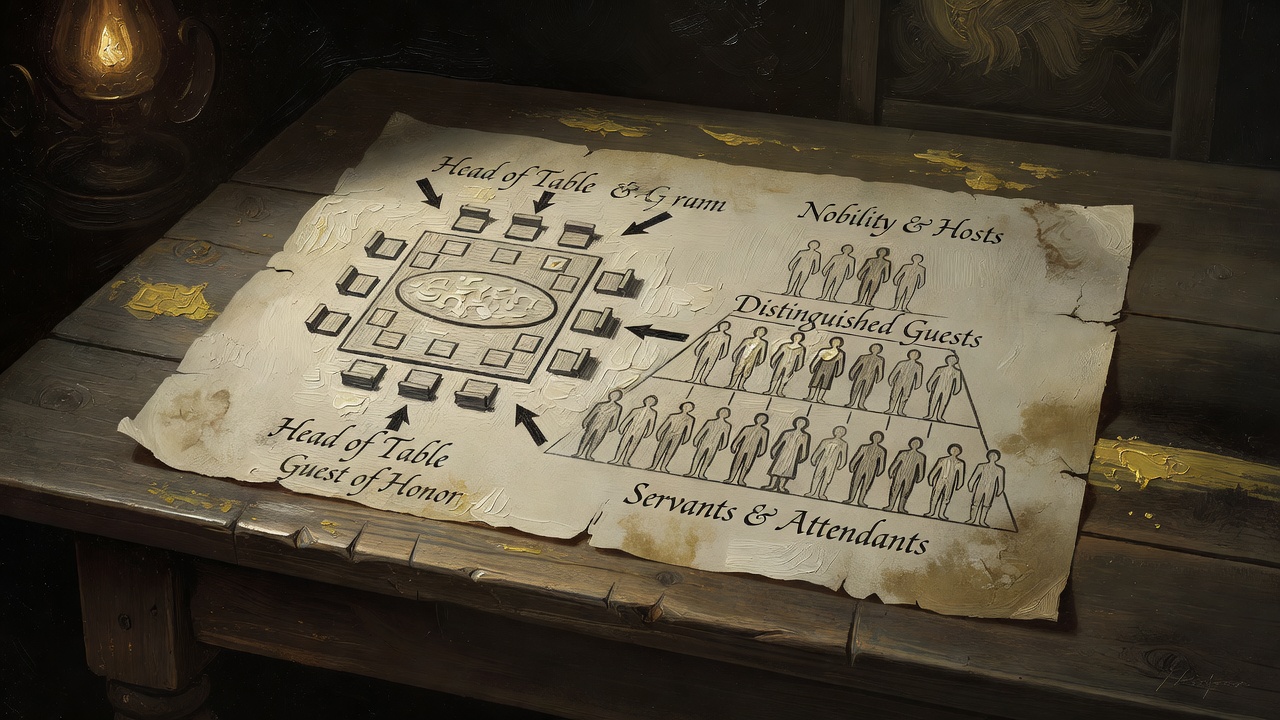 Head of Table & G runn
Nobility & Hosts
Distinguished Guests
Head of Table
Guest of Honor
Servants & Attendants